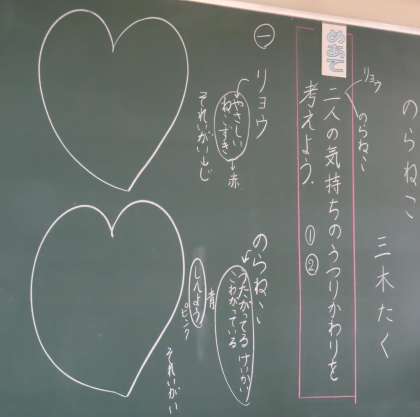 のらねこ
三木たく
めあて
リョウ
のらねこ
二人の気持ちのうつりかわりを
考えよう。①②
一
リョウ
やさしい
ねこすき
→赤
それいがい
のらねこ
うたがってる けいかい
こわがっている
青
しんよう
ピンク
それいがい